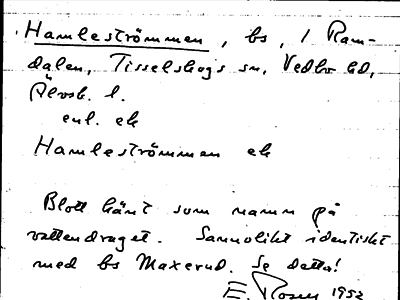 Hamleströmmen, bs, i Ram-
dalen, Tisselskogs sn, Vedbo hd,
Älvsb. l.
enl. ek
Hamleströmmen ek
Blott känt som namn på
vattendraget. Sannolikt identiskt
med bs Maxerud. Se detta!
E. Rosén 1952